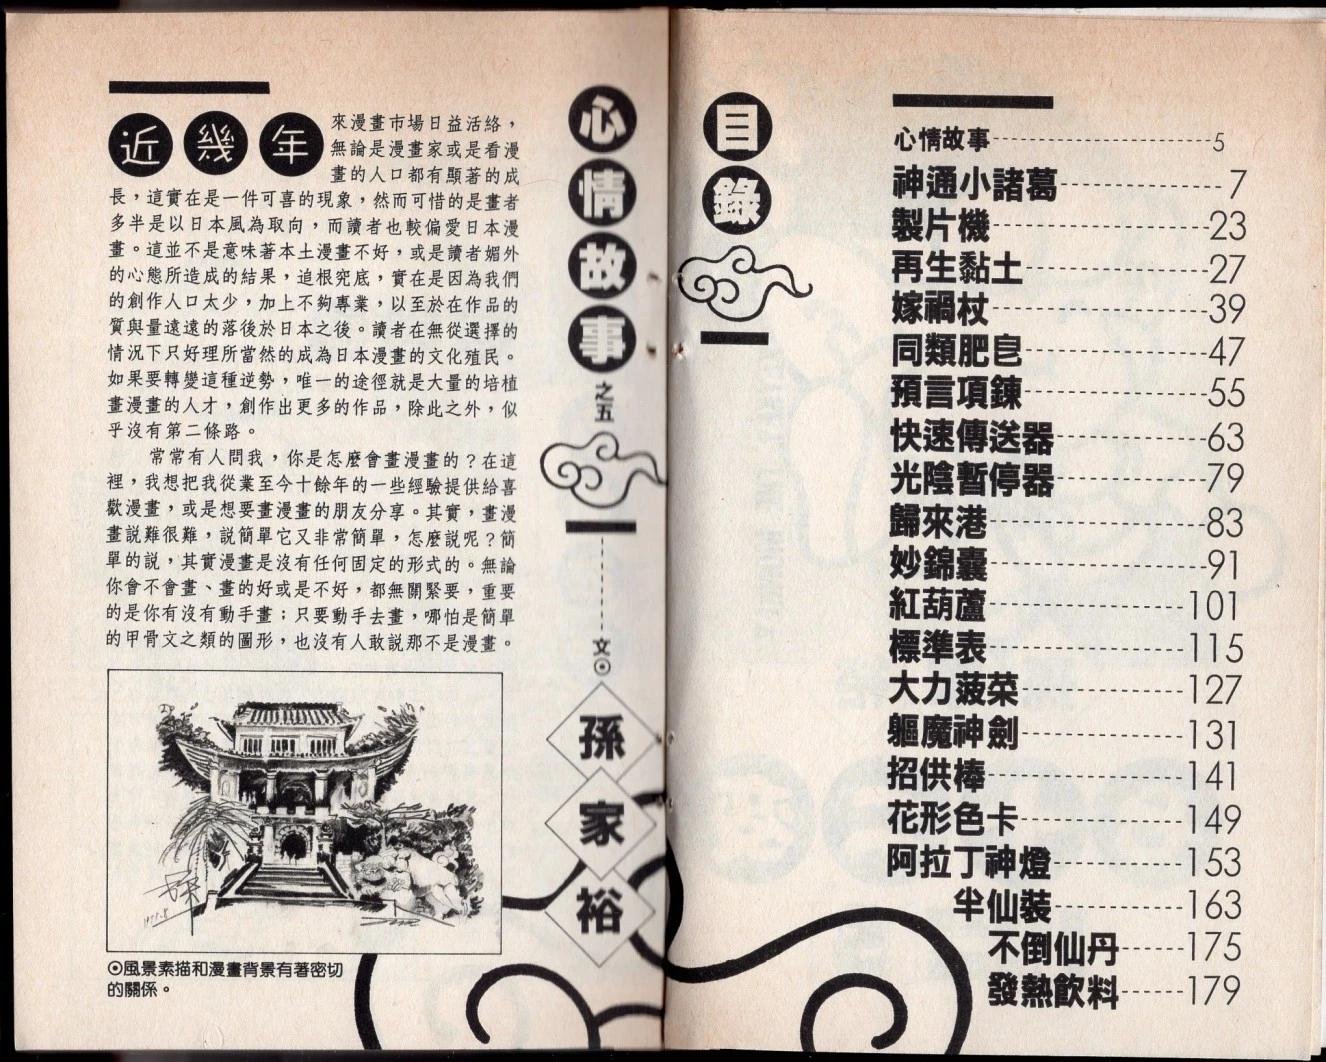 近幾年來漫畫市場日益活絡，
無論是漫畫家或是看漫
畫的人口都有顯著的成
長，這實在是一件可喜的現象，然而可惜的是畫者
多半是以日本風為取向，而讀者也較偏愛日本漫
畫。這並不是意味著本土漫畫不好，或是讀者媚外
的心態所造成的結果，追根究底，實在是因為我們
的創作人口太少，加上不夠專業，以至於在作品的
質與量遠遠的落後於日本之後。讀者在無從選擇的
情況下只好理所當然的成為日本漫畫的文化殖民。
如果要轉變這種逆勢，唯一的途徑就是大量的培植
畫漫畫的人才，創作出更多的作品，除此之外，似
乎沒有第二條路。
常常有人問我，你是怎麼會畫漫畫的？在這
裡，我想把我從業至今十餘年的一些經驗提供給喜
歡漫畫，或是想要畫漫畫的朋友分享。其實，畫漫
畫說難很難，說簡單它又非常簡單，怎麼說呢？簡
單的說，其實漫畫是沒有任何固定的形式的。無論
你會不會畫、畫的好或是不好，都無關緊要，重要
的是你有沒有動手畫；只要動手去畫，哪怕是簡單
的甲骨文之類的圖形，也沒有人敢說那不是漫畫。
⊙風景素描和漫畫背景有著密切
的關係。
心情故事之五
文⊙孫家裕
目錄
心情故事-----5
神通小諸葛-----7
製片機-----23
再生黏土-----27
嫁禍杖-----39
同類肥皂-----47
預言項鍊-----55
快速傳送器-----63
光陰暫停器-----79
歸來港-----83
妙錦囊-----91
紅葫蘆-----101
標準表-----115
大力菠菜-----127
驅魔神劍-----131
招供棒-----141
花形色卡-----149
阿拉丁神燈-----153
半仙裝-----163
不倒仙丹-----175
發熱飲料-----179